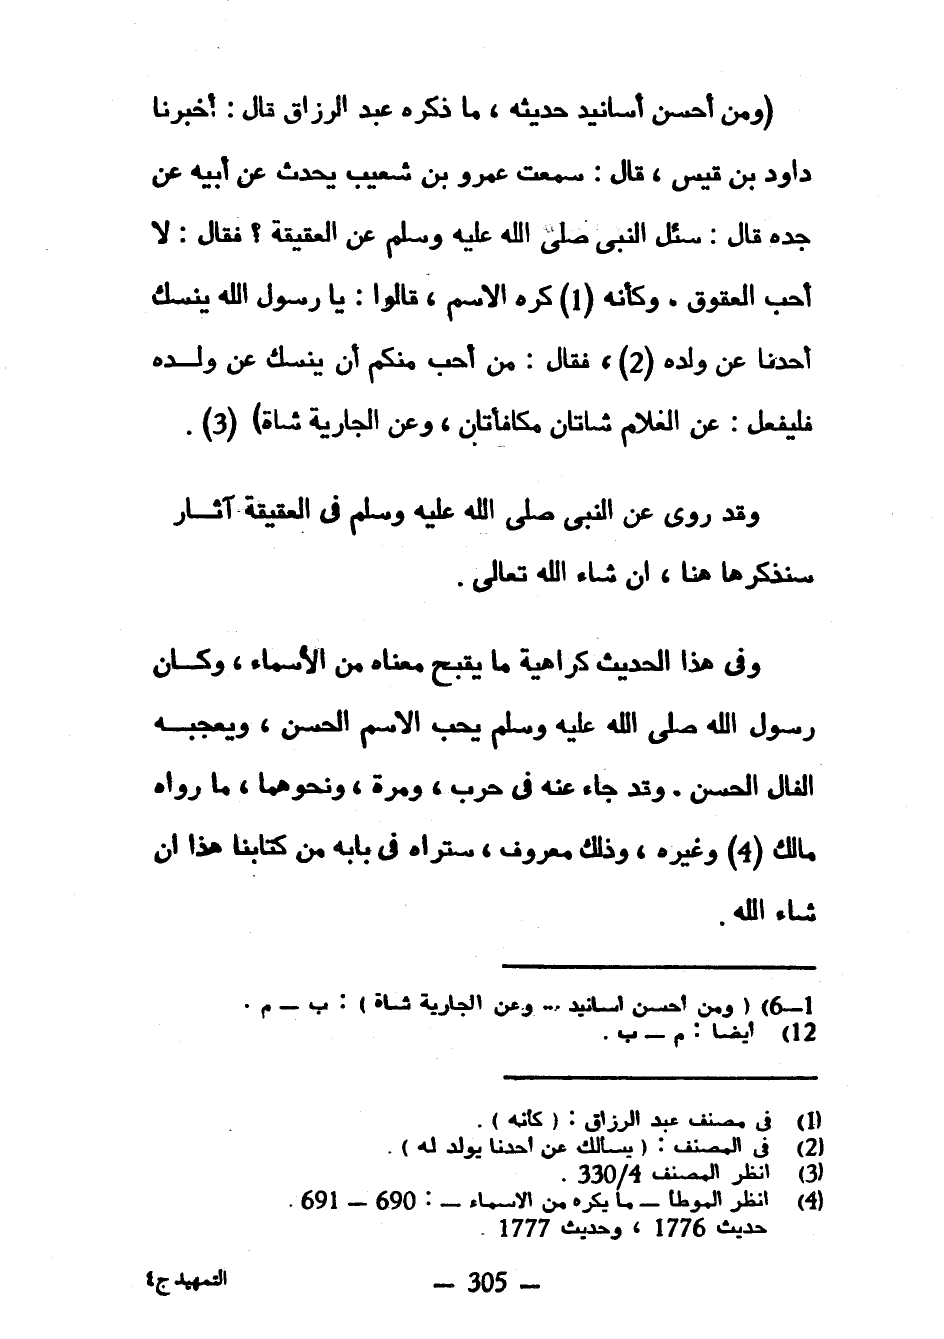 (ومن أحسن أسانيد حديثه ، ما ذكره عبد الرزاق قال : أخبرنا
داود بن قيس ، قال : سمعت عمرو بن شعيب يحدث عن أبيه عن
جده قال : سئل النبى صلى الله عليه وسلم عن العقيقة ؟ فقال : لا
أحب العقوق . وكأنه (1) كره الاسم ، قالوا : يا رسول الله ينسك
أحدنا عن ولده (2) ، فقال : من أحب منكم أن ينسك عن ولـــده
فليفعل : عن الغلام شاتان مكافأتان ، وعن الجارية شاة) (3) .
وقد روى عن النبى صلى الله عليه وسلم فى العقيقة آثـــار
سنذكرها هنا ، ان شاء الله تعالى .
وفى هذا الحديث كراهية ما يقبح معناه من الأسماء ، وكـــان
رسول الله صلى الله عليه وسلم يحب الاسم الحسن ، ويعجبـــه
الفال الحسن . وقد جاء عنه فى حرب ، ومرة ، ونحوهما ، ما رواه
مالك (4) وغيره ، وذلك معروف ، ستراه فى بابه من كتابنا هذا ان
شاء الله .
1—6) ( ومن أحسن اسانيد ... وعن الجارية شاة ) : ب — م .
12) أيضا : م — ب .
(1) فى مصنف عبد الرزاق : ( كأنه ) .
(2) فى المصنف : ( يسالك عن احدنا يولد له ) .
(3) انظر المصنف 330/4 .
(4) انظر الموطا — ما يكره من الاسماء — : 690 — 691 .
حديث 1776 ، وحديث 1777 .
— 305 —
التمهيد ج٤